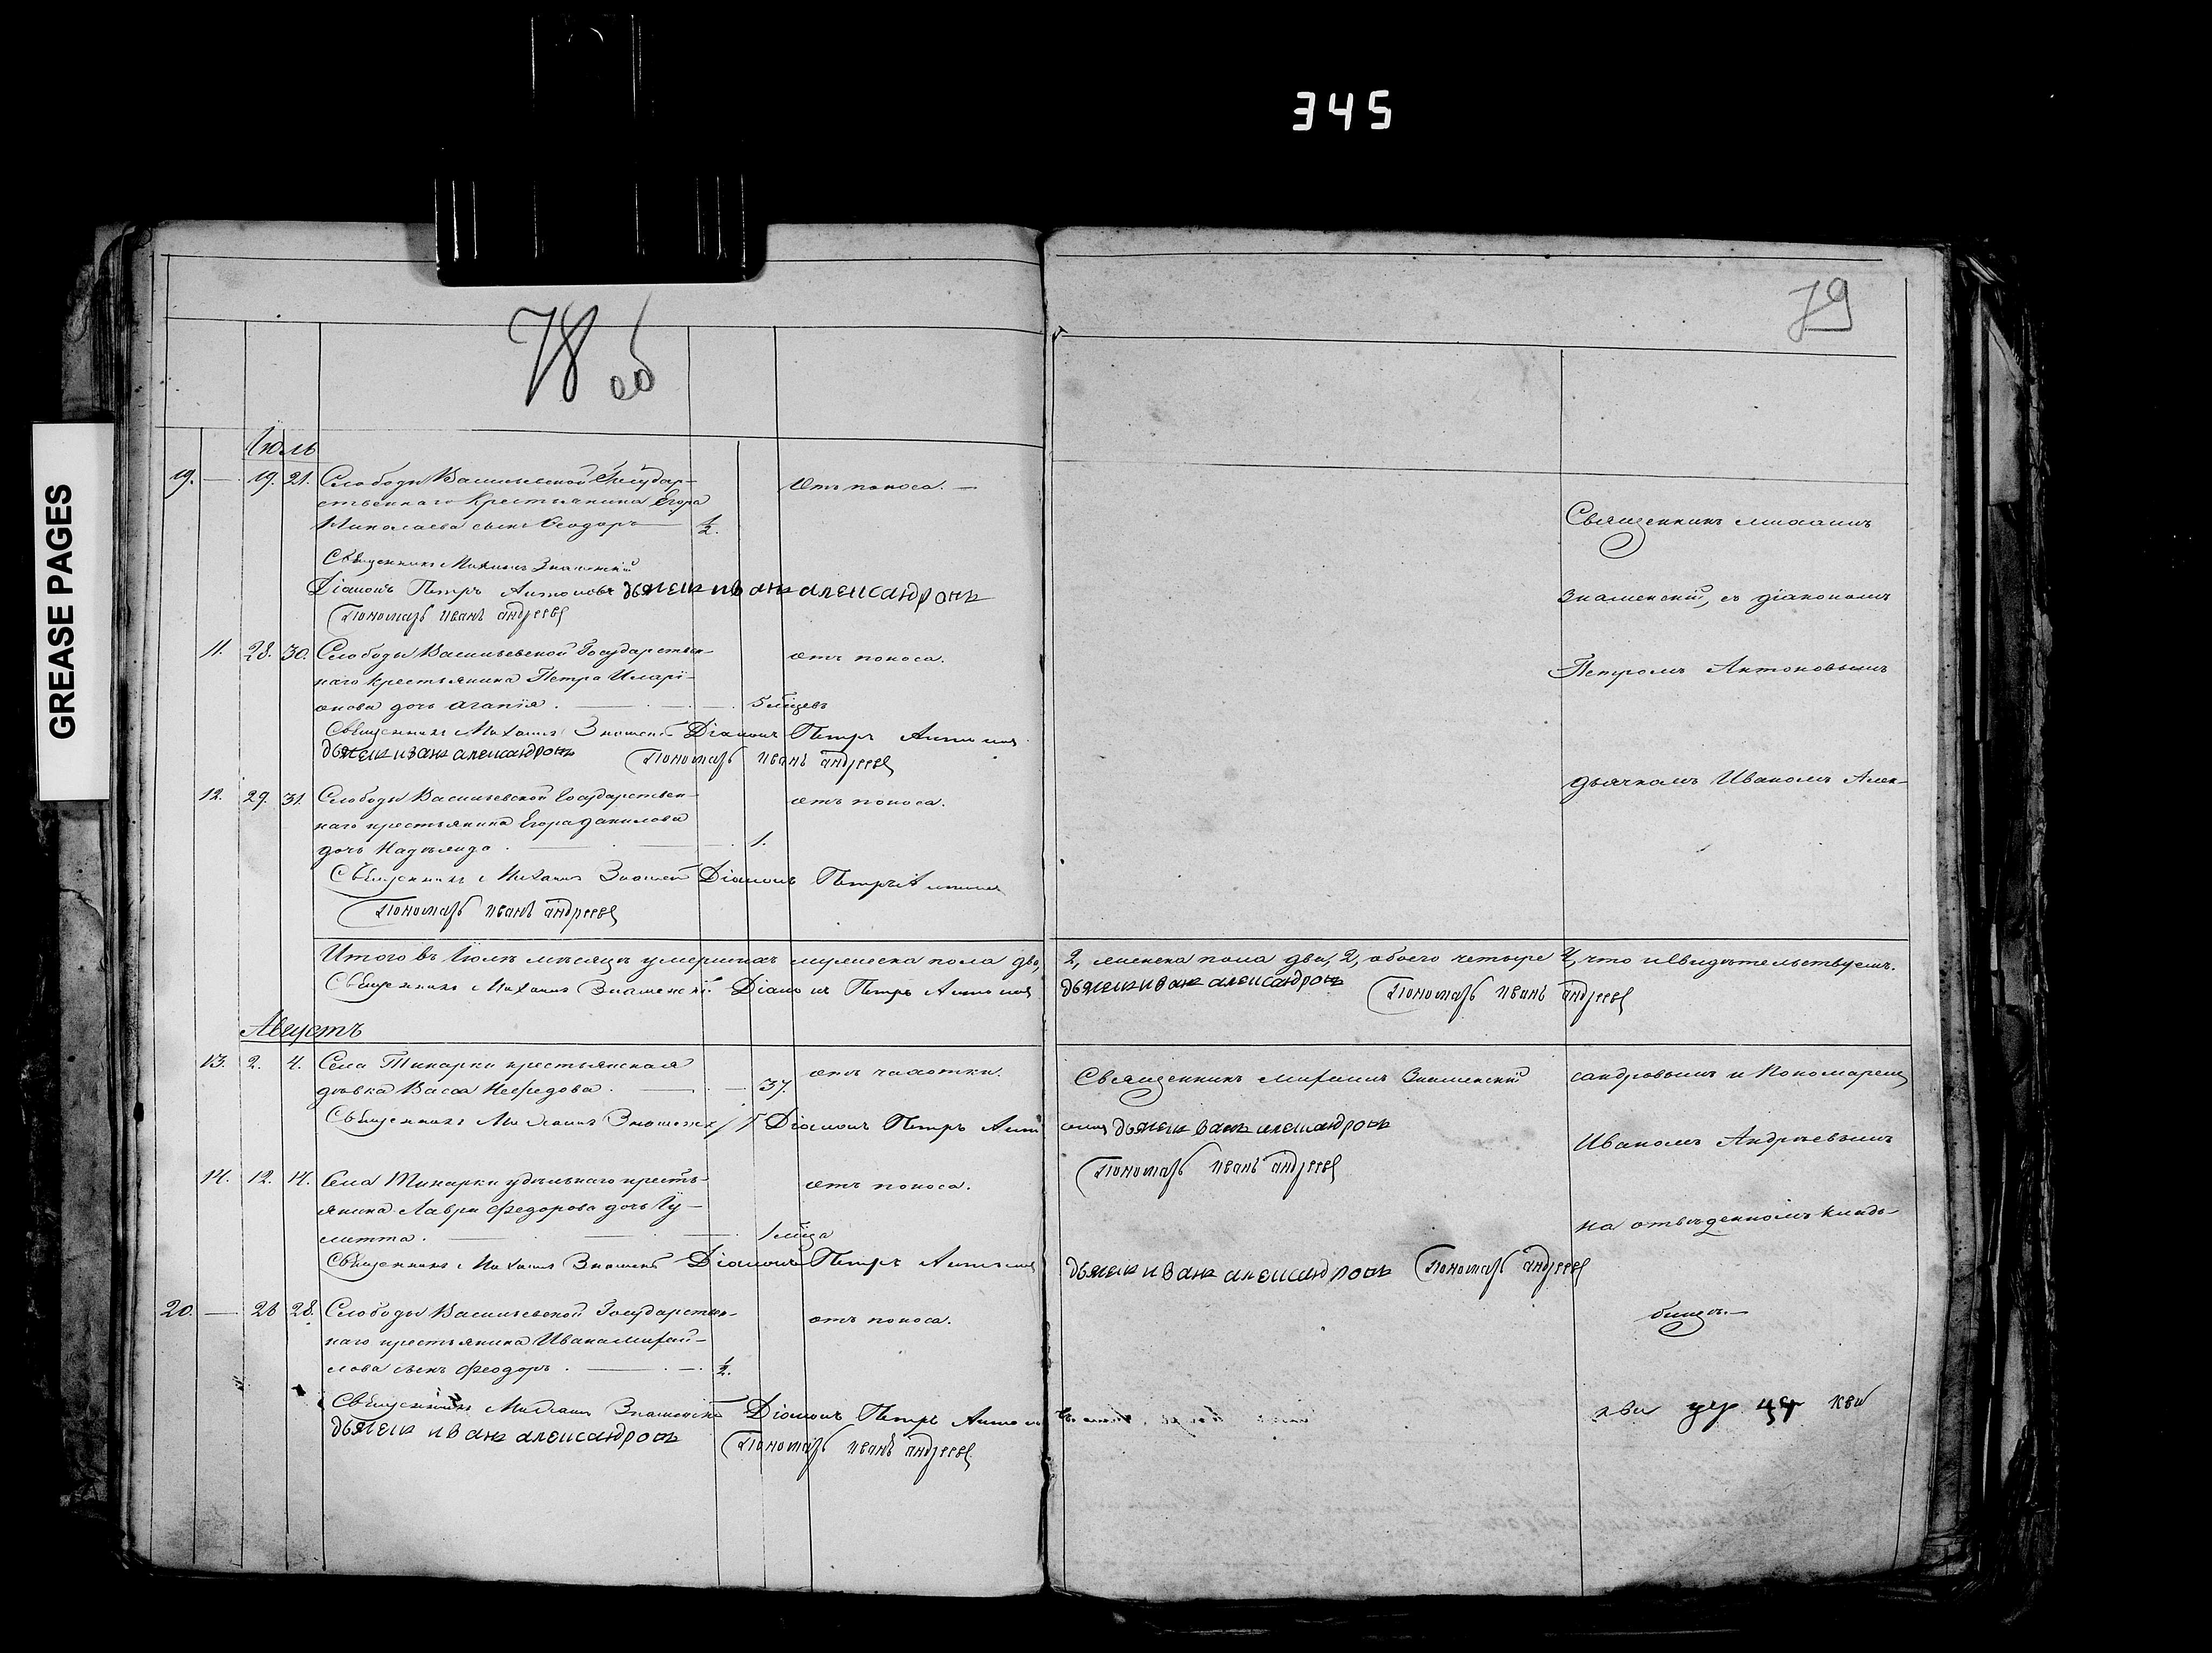 345
GREASE PAGES
78 об
79
Іюль
19. — 19. 21. Слободы Васильевской Государ-
ственнаго Крестьянина Егора
Николаева сынъ Ѳеодоръ — 1/2.
Отъ поноса. —
Священникъ Михаилъ Знаменскій
Діаконъ Петръ Антоновъ дьячекъ иванъ александровъ
Пономарь иванъ андреевъ
11. 28. 30. Слободы Васильевской Государствен-
наго крестьянина Петра Иларі-
онова дочь Агапія. — 5 мѣсцевъ
отъ поноса.
Священникъ Михаилъ Знаменск Діаконъ Петръ Антонов
дьячекъ иванъ александровъ Пономарь иванъ андреевъ
12. 29. 31. Слободы Васильевской Государствен-
наго крестьянина Егора Данилова
дочь Надежда. — 1.
отъ поноса.
Священникъ Михаилъ Знамен Діаконъ Петръ Антонов
Пономарь иванъ андреевъ
Итого въ Іюлѣ мѣсяцѣ умершихъ мужеска пола два, 2, женска пола два, 2, обоего четыре 4, что и свидѣтельствуемъ.
Священникъ Михаилъ Знаменскій Діаконъ Петръ Антонов дьячекъ иванъ александровъ Пономарь иванъ андреевъ
Августъ
13. 2. 4. Села Тинарки крестьянская
дѣвка Васса Нефедова. — 37.
отъ чахотки.
Священникъ Михаилъ Знаменск Діаконъ Петръ Антонов дьячекъ иванъ александровъ
Пономарь иванъ андреевъ
14. 12. 14. Села Тинарки удѣльнаго кресть-
янина Лавра Федорова дочь Іу-
литта. — 1 мѣсца
отъ поноса.
Священникъ Михаилъ Знаменск Діаконъ Петръ Антонов дьячекъ иванъ александровъ Пономарь андреевъ
20. — 26 28. Слободы Васильевской Государствен-
наго крестьянина Ивана Михай-
лова сынъ Феодоръ. — 1/2.
отъ поноса.
Священникъ Михаилъ Знаменск Діаконъ Петръ Антонов
дьячекъ иванъ александровъ Пономарь иванъ андреевъ
Священникъ Михаилъ Знаменскій
Священникъ михаилъ
Знаменскій, съ діакономъ
Петромъ Антоновымъ
дьячкомъ Иваномъ Алек-
сандровымъ и Пономаремъ
Иваномъ Андреевымъ
на отведенномъ кладь-
бищѣ. —